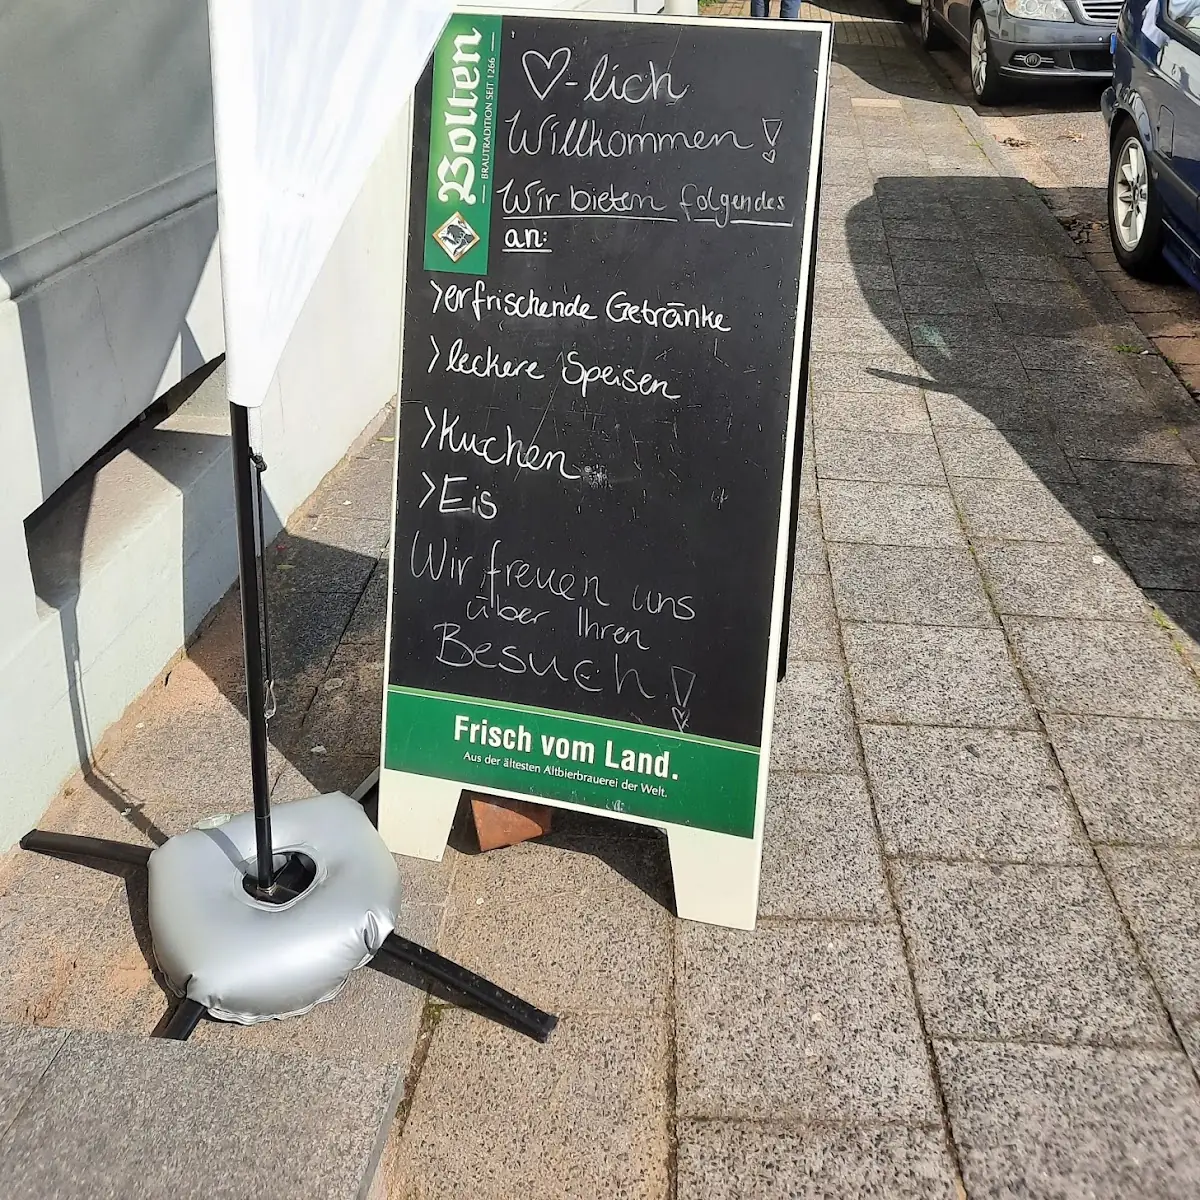 Bolten
BRAUTRADITION SEIT 1266
♡-lich
Willkommen!
Wir bieten folgendes
an:
>erfrischende Getränke
>leckere Speisen
>Kuchen
>Eis
Wir freuen uns
über Ihren
Besuch!
Frisch vom Land.
Aus der ältesten Altbierbrauerei der Welt.